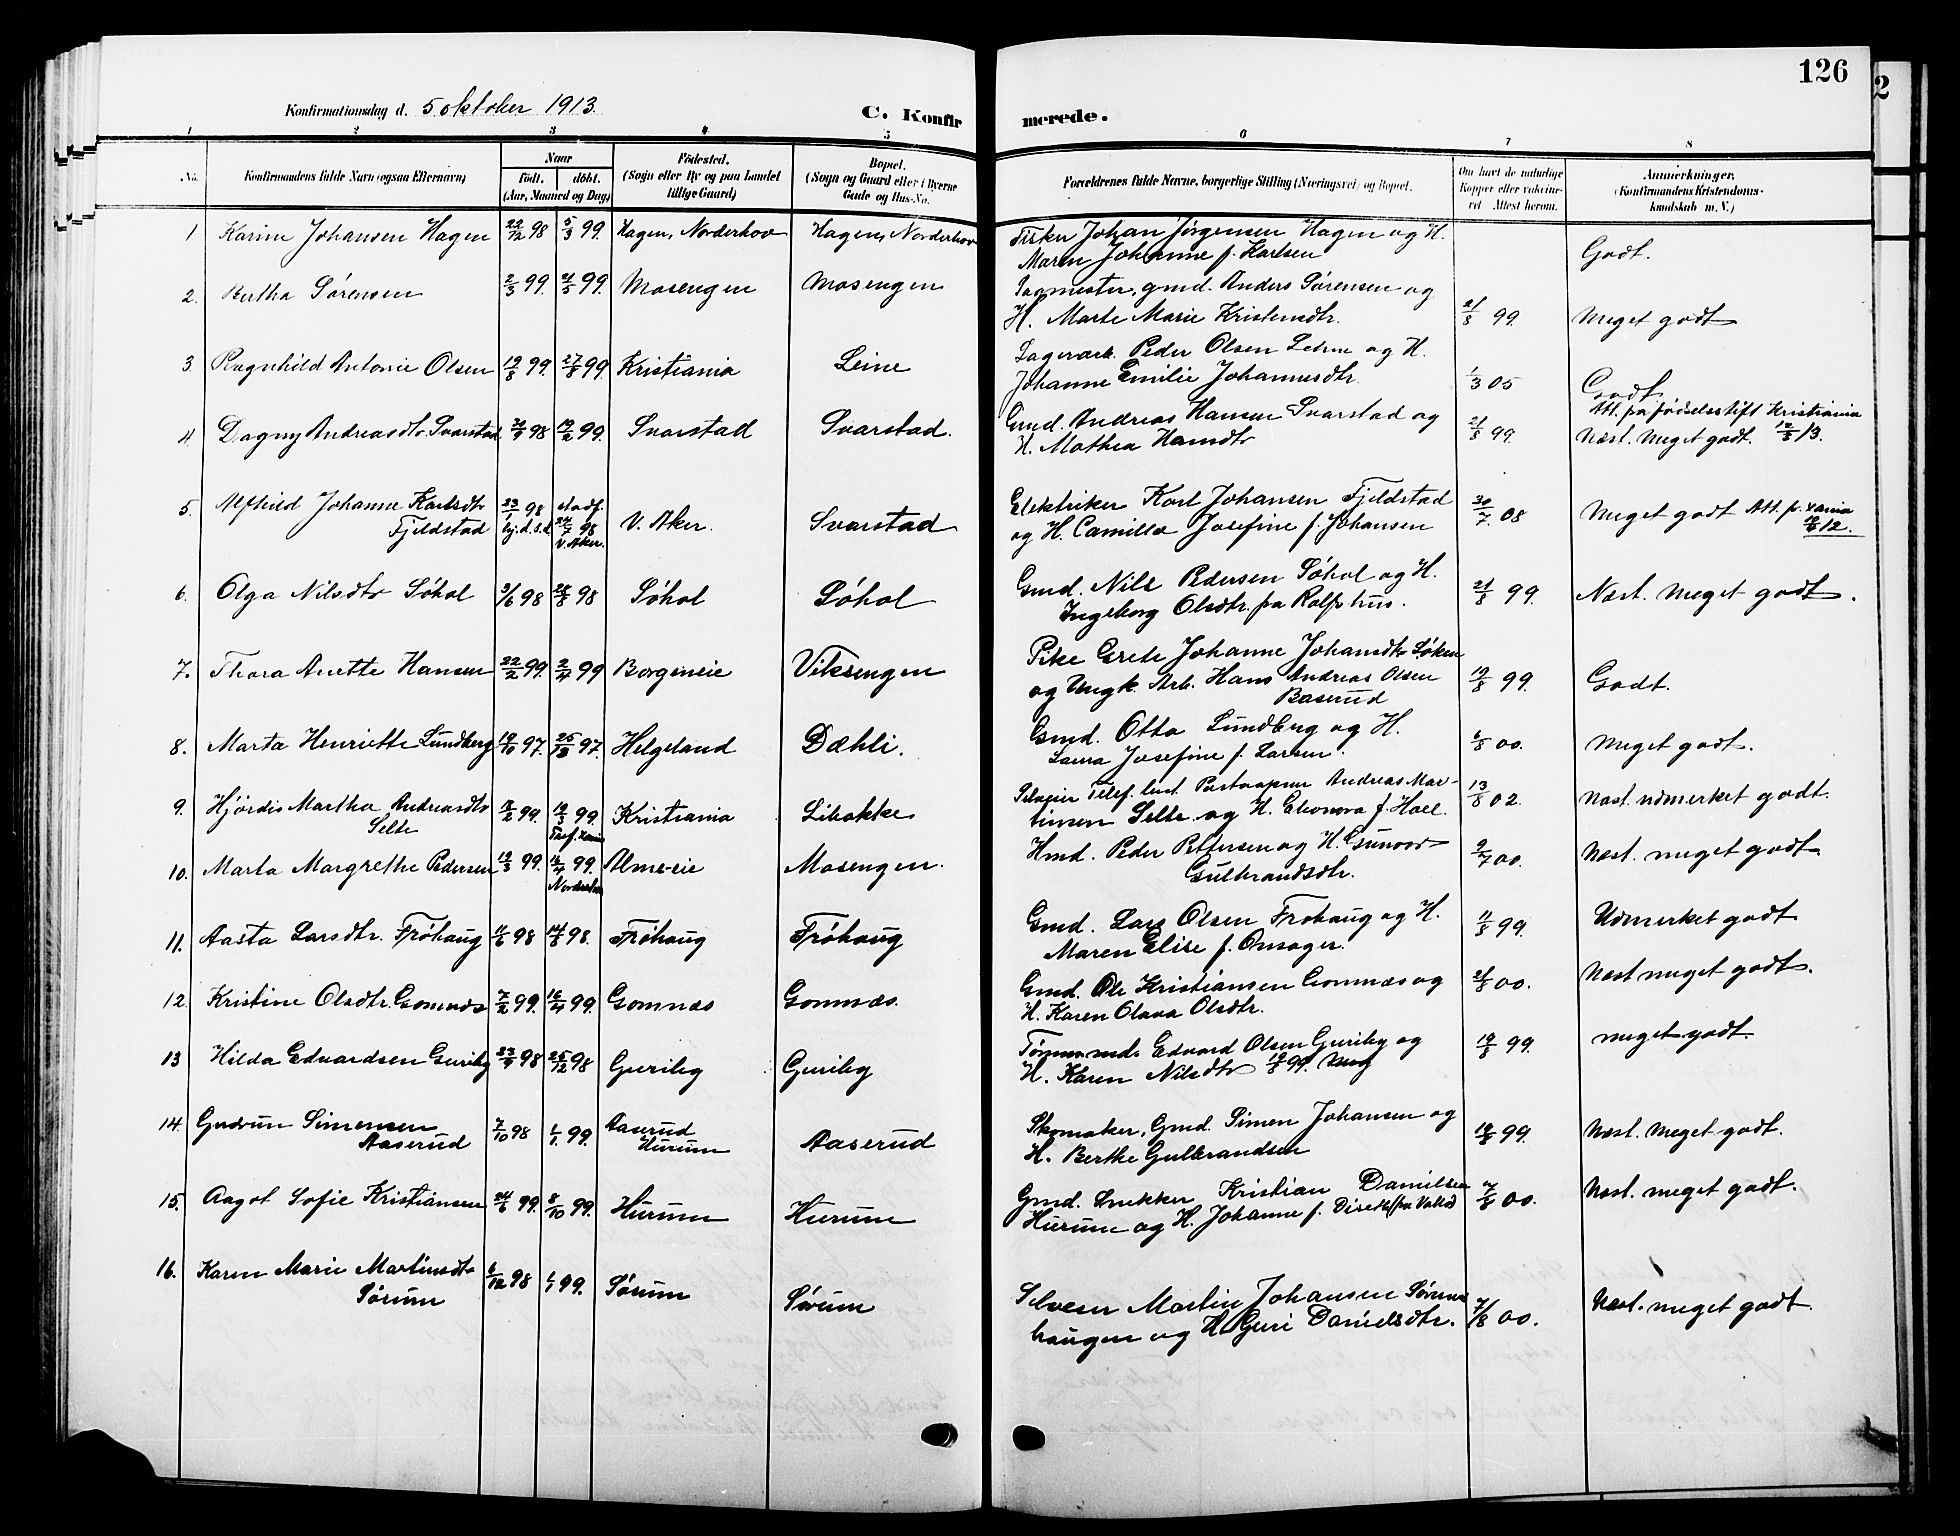 126
2
Konfirmationsdag d. 5 oktober 1913.
C. Konfirmerede.
1 2 3 4 5 6 7 8
No.
Konfirmandens fulde Navn (ogsaa Efternavn)
Naar
födt. döbt.
(Aar, Maaned og Dag)
Födested.
(Sogn eller By og paa Landet
tillige Gaard)
Bopæl.
(Sogn og Gaard eller i Byerne
Gade og Hus-No.
Forældrenes fulde Navne, borgerlige Stilling (Næringsvei) og Bopæl.
Om havt de naturlige
Kopper eller vaccineret Attest herom.
Anmerkninger.
(Konfirmandens Kristendomskundskab m. V.)
1 Karine Johansen Hagen 22/12 98 5/3 99. Hagen, Norderhov Hagen, Norderhov
Johan Jørgensen Hagen og H.
Maren Johanne f. Karlsen Godt.
2. Bertha Sørensen 2/3 99. 99. Mosengen Mosengen
Sagmester, gmd. Anders Sørensen og
H. Marte Marie Kristensdtr. 21/8 99. Meget godt
3. Ragnhild Antonie Olsen 19/8 99. 27/8 99. Kristiania Leine
Lagerarb. Peder Olsen og H.
Johanne Emilie Johannesdtr. 1/3 05 Godt
Att. på fødselsstift Kristiania
4. Dagny Andreasdtr. Svarstad 98 99. Svarstad Svarstad.
Gmd. Andreas Hansen Svarstad og
H. Mathea Hansdtr 21/8 99. Næst. Meget godt. 13.
5. Alfhild Johanne Karlsdtr
Fjeldstad 23/1 98 hj.d. s.d. stadf. 98 V. Aker. V. Aker. Svarstad
Elektriker Karl Johansen Fjeldstad
og H. Camilla Josefine f. Johansen 30/7. 08 Meget godt Att. fr. Xania
12.
6. Olga Nilsdtr Søhol 3/6 98 28/8 98 Søhol Søhol
Gmd. Nils Pedersen Søhol og H.
Ingeborg Olsdtr. fra Rolfshus. 21/8 99. Næst. Meget godt.
7. Thora Anette Hansen 22/2 99. 2/4 99 Borgeneie Viksengen
Pike Grete Johanne Johansdtr Søhol
og Ungk. Arb. Hans Andreas Olsen
Baserud 19/8 99. Godt.
8. Marta Henriette Lundberg 19/10 97. 97. Helgeland Dæhli.
Gmd. Otto Lundberg og H.
Laura Josefine f. Larsen. 00. Meget godt.
9. Hjördis Martha Andreasdtr
Selte 99. 19/3 99. Kristiania Libakke
Telef. best. Postaapner Andreas Martinsen Selte og H. Eleonora f. Hoel. 13/8 02. Næst. udmerket godt.
10. Marta Margrethe Pedersen 19/3 99. 16/4 99. Norderhov Alme-eie Mosengen.
Hmd. Peder Pettersen og H. Gunvor
Gulbrandsdtr. 9/7 00. Næst. meget godt
11. Aasta Larsdtr. Frøhaug 11/6 98 14/8 98. Frøhaug Frøhaug
Gmd. Lars Olsen Frøhaug og H.
Maren Elise f. Onsager. 11/8 99. Udmerket godt
12. Kristine Olsdtr. Gomnæs 7/2 99. 16/4 99. Gomnæs Gomnæs.
Gmd. Ole Kristiansen Gomnæs og
H. Karen Olava Olsdtr. 21/8 00. Næst meget godt.
13 Hilda Edvardsen Guriby 23/9 98 26/12 98 Guriby Guriby
Tømmermd. Edvard Olsen Guriby og
H. Karen Nilsdtr 19/8 99. Meg 19/8 99. meget godt.
14. Gudrun Simensen
Aaserud 7/10 98 1/1 99. Aaserud
Hurum Aaserud
Skomaker, Gmd. Simen Johansen og
H. Berthe Gulbrandsen 19/8 99. Næst. Meget godt.
15. Aagot Sofie Kristiansen 24/6 99. 8/10 99. Hurum Hurum
Gmd. Snekker Kristian Danielsen
Hurum og H. Johanne f. 7/8 00. Næst. meget godt.
16. Karen Marie Martinsdtr
Sørum 6/12 98 1/1 99. Sørum Sørum
Selveier Martin Johansen Sørumhaugen og H. Guri Danielsdtr. 7/8 00. Næst. meget godt.